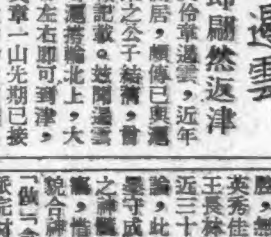 遏雲
翩然返津
伶章遏雲，近年
居，頗傳已與
之公子結褵，曾
記載。茲聞遏雲
搭輪北上，大
左右即可到津，
章一山先期已接
英秀佳
王長林
近三十
論，此
守成
之神
，惜
貌合神
派完